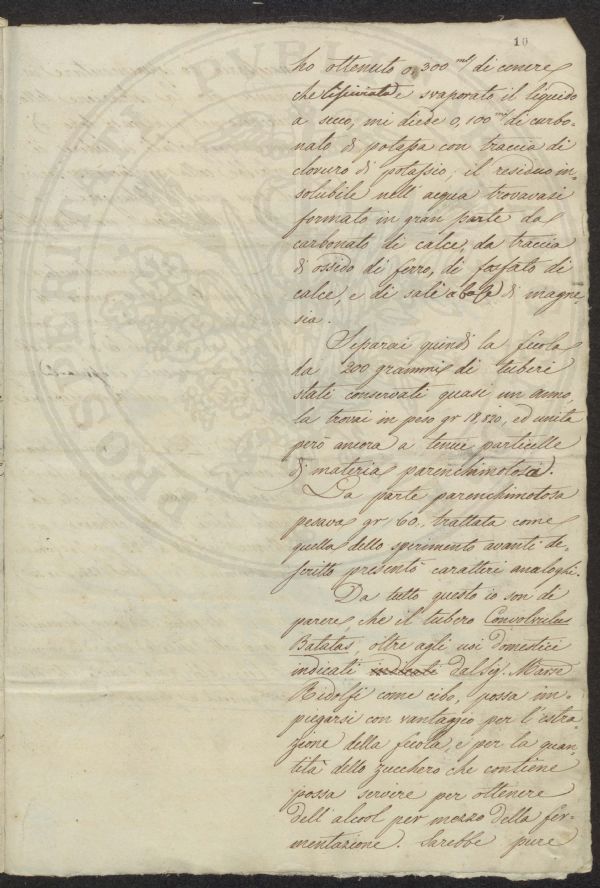 10
ho ottenuto 0,300 mil di cenere
che lisciviate e svaporato il liquido
a secco, mi diede 0,100 mil di carbo-
nato di potassa con traccia di
cloruro di potassio; il residuo in-
solubile nell'acqua trovavasi
formato in gran parte da
carbonato di calce, da traccia
di ossido di ferro, di fosfato di
calce, e di sali a base di magne-
sia.
Separai quindi la fecola
da 200 grammi di tuberi
stati conservati quasi un anno,
la trovai in peso gr 18,820, ed unita
però ancora a tenue particelle
di materia parenchimotosa.
La parte parenchimotosa
pesava gr 60., trattata come
quella dello sperimento avanti de-
scritto presentò caratteri analoghi.
Da tutto questo io son di
parere, che il tubero Convolvulus
Batatas, oltre agli usi domestici
indicati indicati dal Sig. Marse
Ridolfi come cibo, possa im-
piegarsi con vantaggio per l'estra-
zione della fecola, e per la quan-
tità dello zucchero che contiene
possa servire per ottenere
dell'alcool per mezzo della fer-
mentazione. Sarebbe pure
PROSPERITATI PUBL